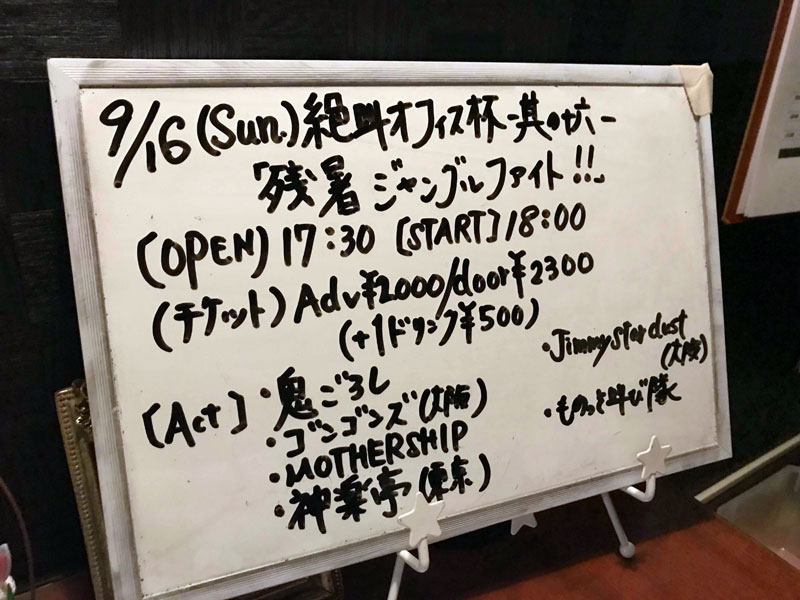 9/16(Sun.)絶叫オフィス杯-其の十六-
「残暑ジャングルファイト!!」
(OPEN)17:30 [START]18:00
(チケット)Adv¥2000/door¥2300
(+1ドリンク¥500)
[Act]・鬼ごろし
・ゴンゴンズ(大阪)
・MOTHERSHIP
・神楽亭(東京)
・Jimmystardust
(大阪)
・ものっそ叫び隊